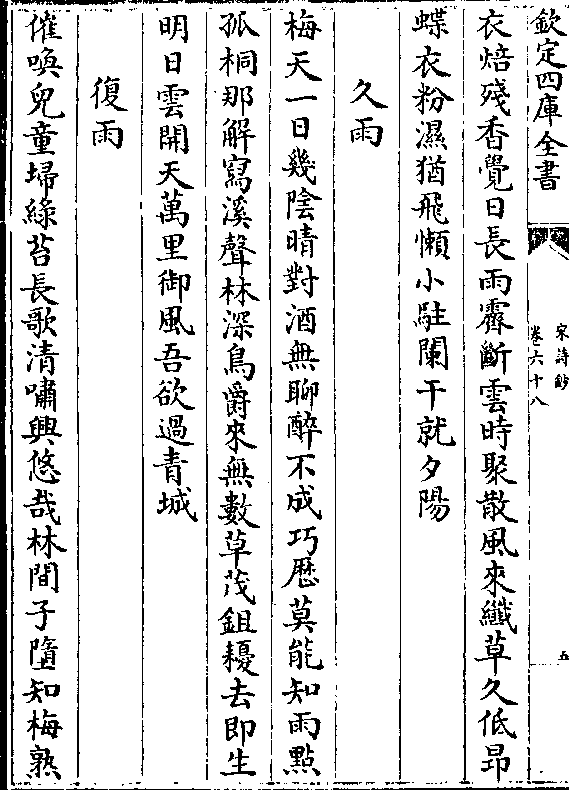 欽定四庫全書
宋詩鈔
卷六十八
五
衣焙殘香覺日長雨霽斷雲時聚散風來纎草久低昂
蝶衣粉濕猶飛懶小駐闌干就夕陽
久雨
梅天一日幾陰晴對酒無聊醉不成巧厯莫能知雨點
孤桐那解寫溪聲林深鳥爵來無數草茂鉏耰去即生
明日雲開天萬里御風吾欲過青城
復雨
催喚兒童埽綠苔長歌清嘯興悠哉林間子墮知梅熟